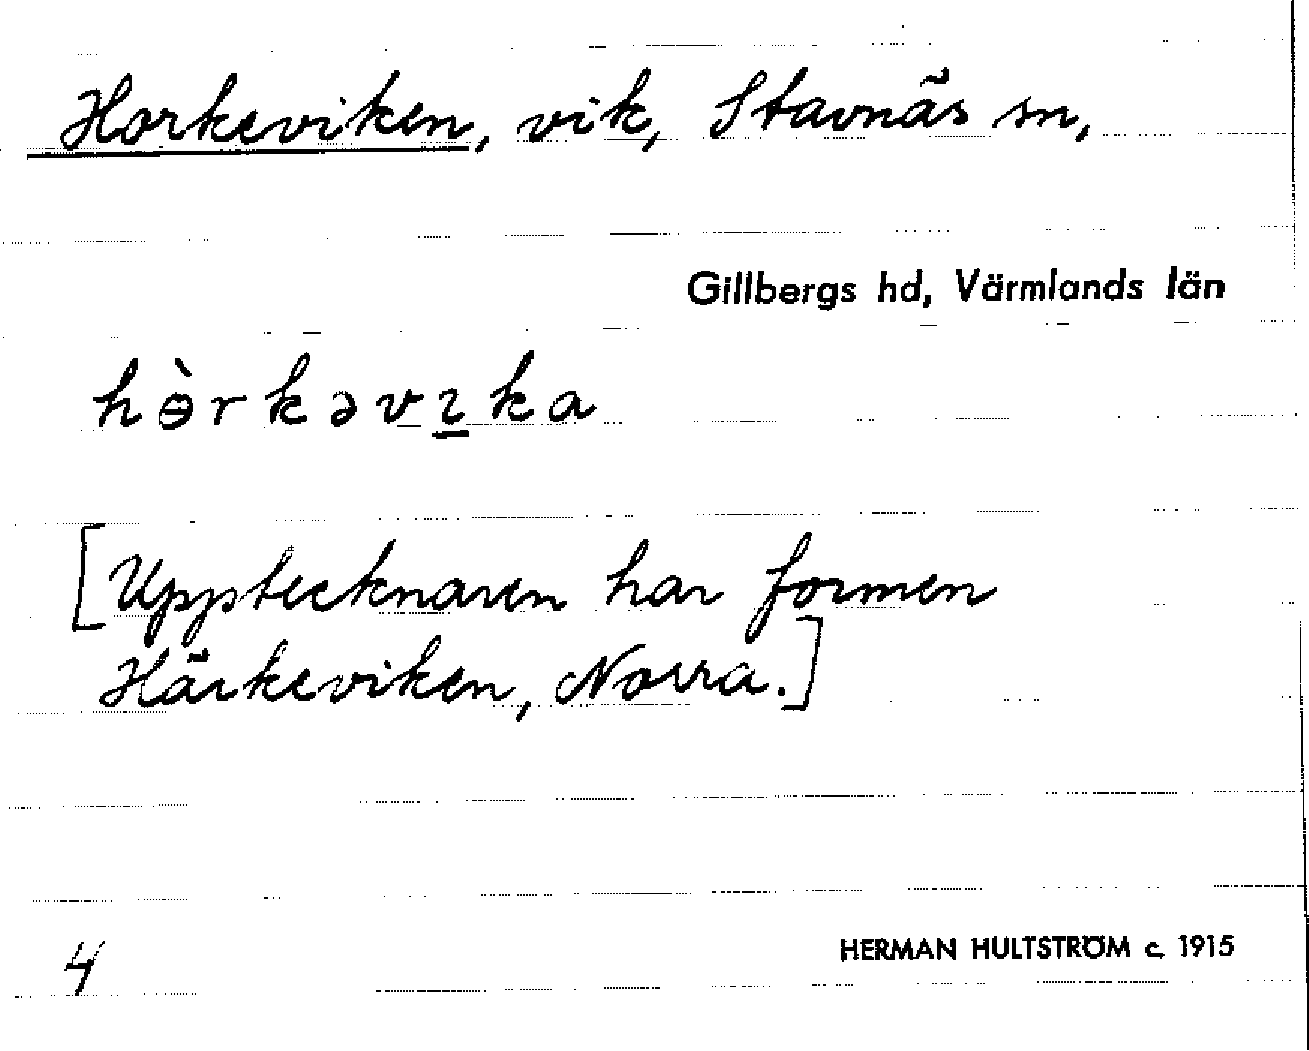 Horkeviken, vik, Stavnäs sn,
Gillbergs hd, Värmlands län
hɵ̀rkəvı̲ka
[Upptecknaren har formen
Härkeviken, Norra.]
4
HERMAN HULTSTRÖM c. 1915